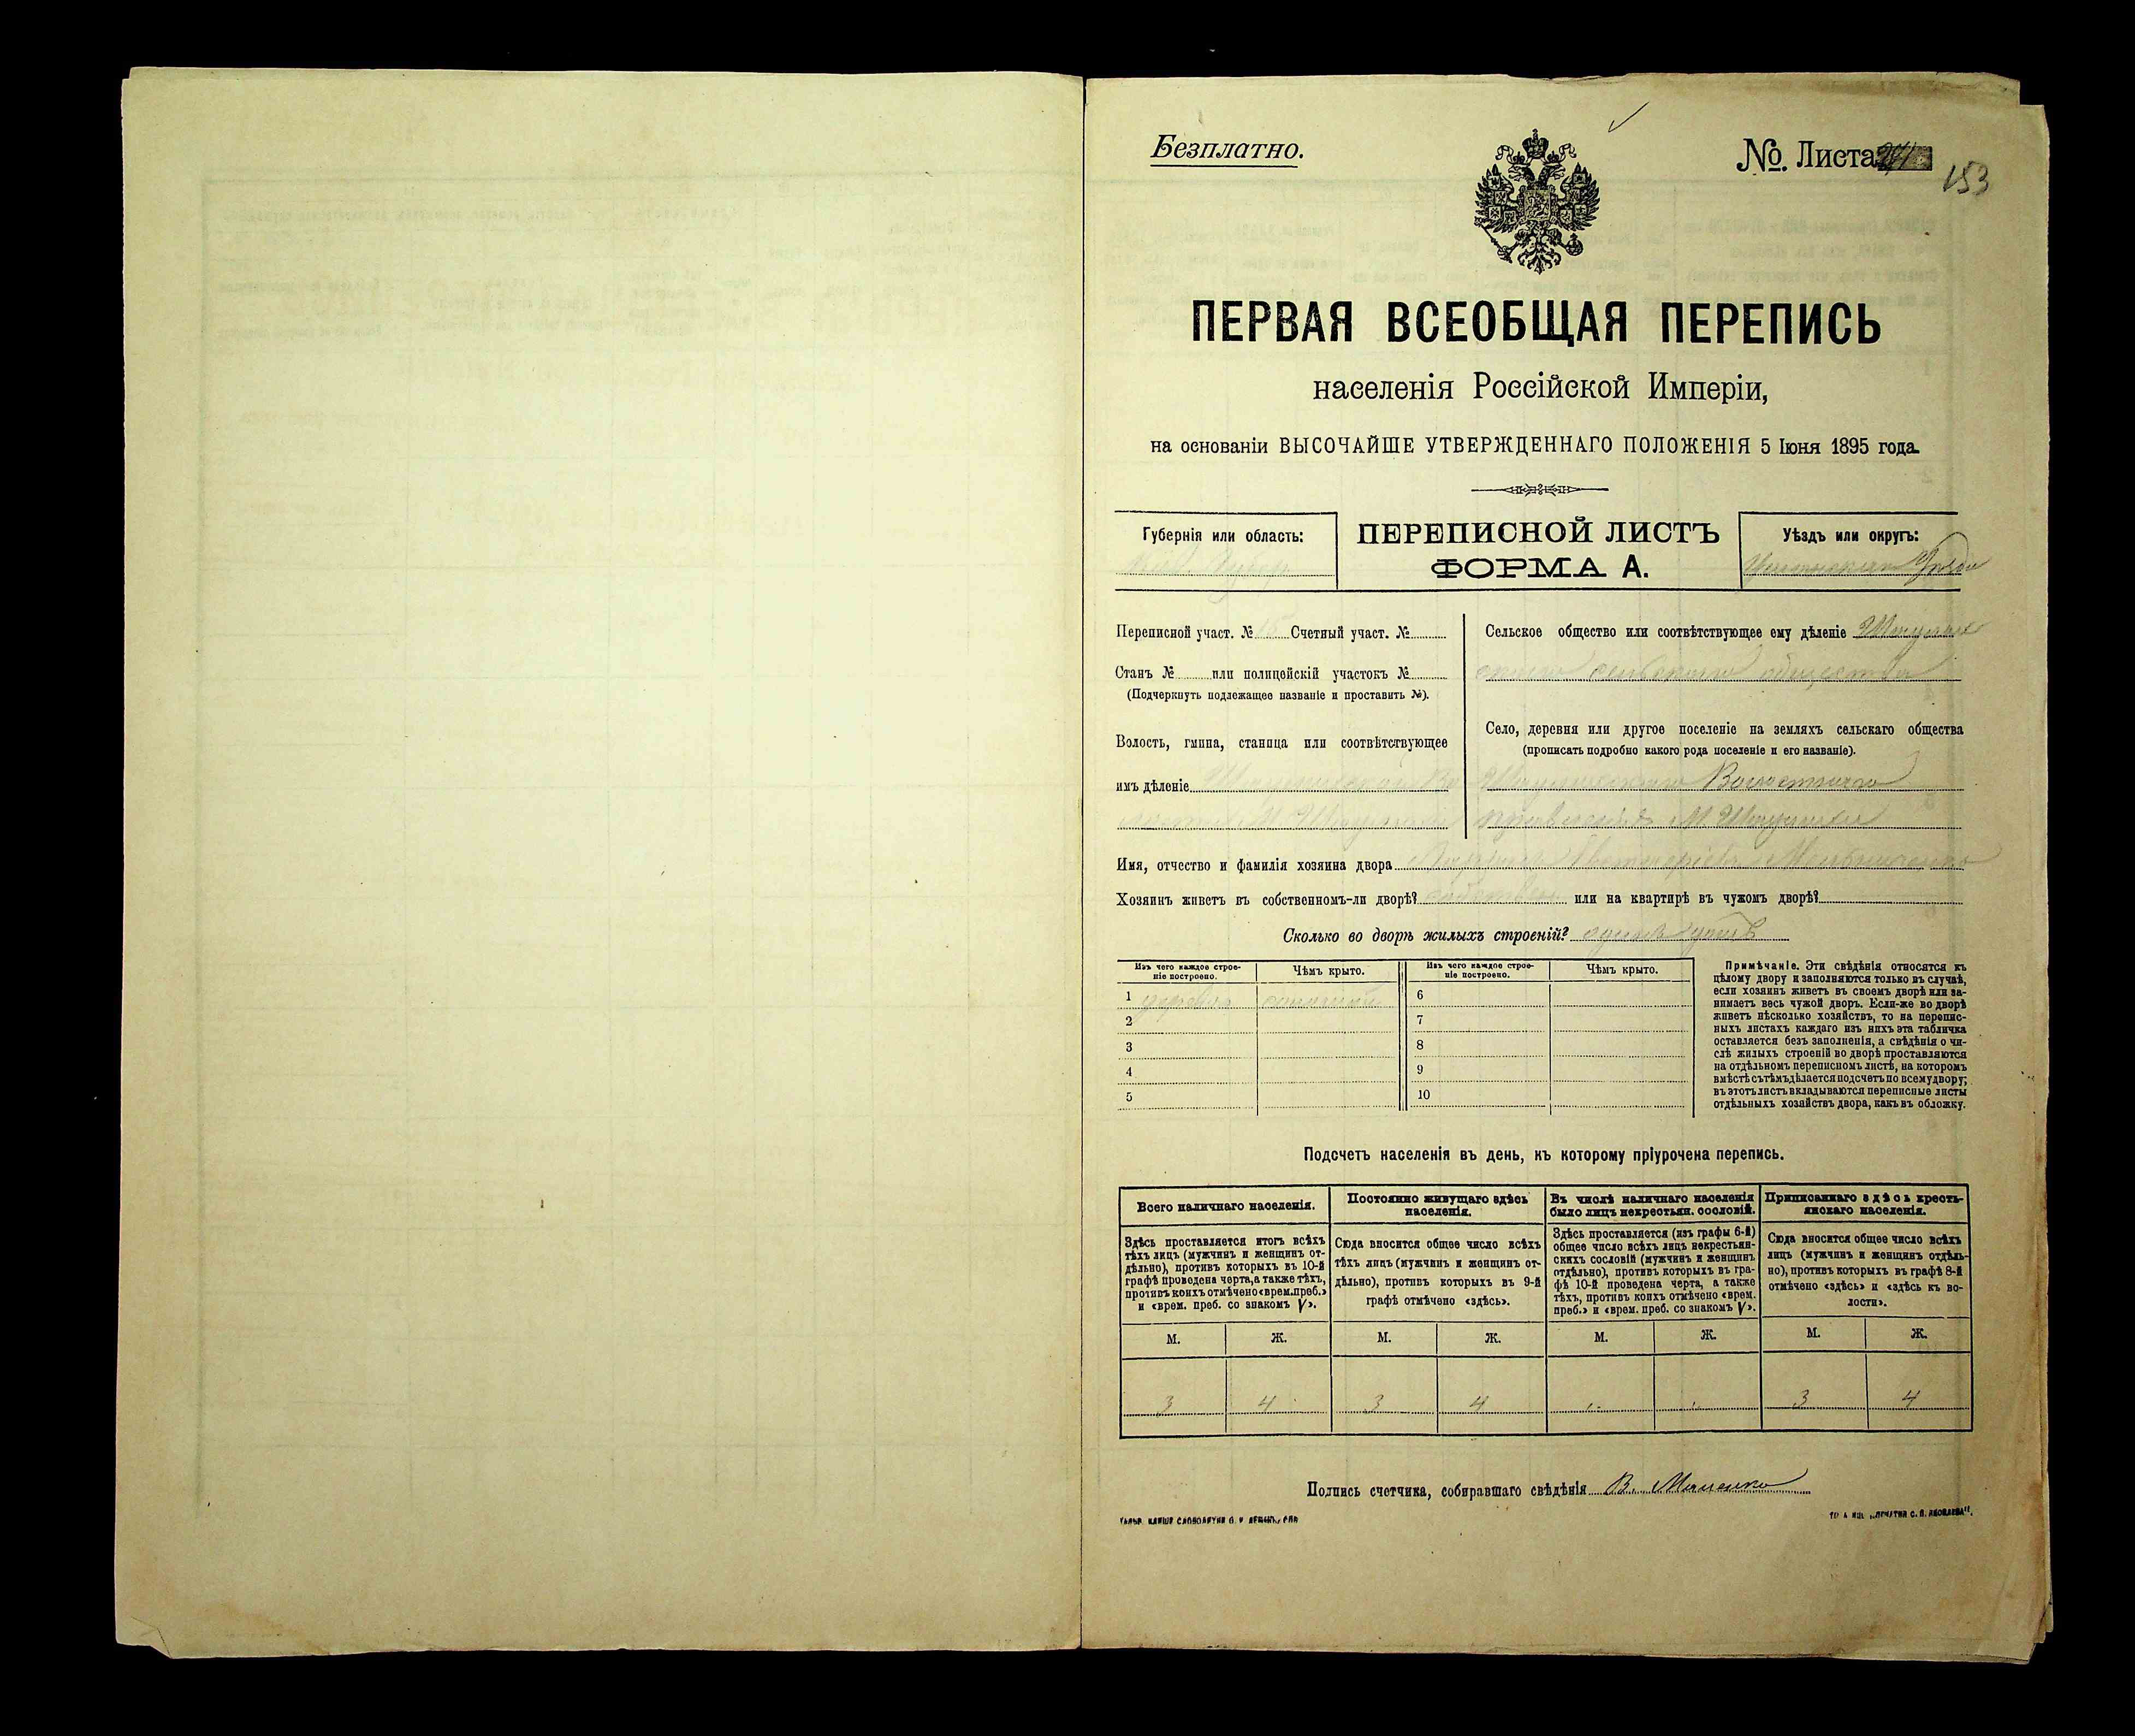 Безплатно.
№ Листа 241
153
ПЕРВАЯ ВСЕОБЩАЯ ПЕРЕПИСЬ
населенія Россійской Имперіи,
на основаніи ВЫСОЧАЙШЕ УТВЕРЖДЕННАГО ПОЛОЖЕНІЯ 5 Іюня 1895 года.
Губернія или область:
ПЕРЕПИСНОЙ ЛИСТЪ
ФОРМА А.
Уѣздъ или округъ:
Переписной участ. № Счетный участ. №
Станъ № или полицейскій участокъ №
(Подчеркнуть подлежащее названіе и проставить №).
Волость, гмина, станица или соотвѣтствующее
имъ дѣленіе
Сельское общество или соотвѣтствующее ему дѣленіе
сельскаго общества
Село, деревня или другое поселеніе на земляхъ сельскаго общества
(прописать подробно какого рода поселеніе и его названіе).
Волостнаго
правленія М.
Имя, отчество и фамилія хозяина двора
Хозяинъ живетъ въ собственномъ-ли дворѣ? или на квартирѣ въ чужомъ дворѣ?
Сколько во дворѣ жилыхъ строеній? одинъ
Изъ чего каждое строе-
ніе построено.
Чѣмъ крыто.
Изъ чего каждое строе-
ніе построено.
Чѣмъ крыто.
1
2
3
4
5
6
7
8
9
10
Примѣчаніе. Эти свѣдѣнія относятся къ
цѣлому двору и заполняются только въ случаѣ,
если хозяинъ живетъ въ своемъ дворѣ или за-
нимаетъ весь чужой дворъ. Если-же во дворѣ
живетъ нѣсколько хозяйствъ, то на перепис-
ныхъ листахъ каждаго изъ нихъ эта табличка
оставляется безъ заполненія, а свѣдѣнія о чи-
слѣ жилыхъ строеній во дворѣ проставляются
на отдѣльномъ переписномъ листѣ, на которомъ
вмѣстѣ съ тѣмъ дѣлается подсчетъ по всему двору;
въ этотъ листъ вкладываются переписные листы
отдѣльныхъ хозяйствъ двора, какъ въ обложку.
Подсчетъ населенія въ день, къ которому пріурочена перепись.
Всего наличнаго населенія.
Здѣсь проставляется итогъ всѣхъ
тѣхъ лицъ (мужчинъ и женщинъ от-
дѣльно), противъ которыхъ въ 10-й
графѣ проведена черта, а также тѣхъ,
противъ коихъ отмѣчено «врем. преб.»
и «врем. преб. со знакомъ V».
Постоянно живущаго здѣсь
населенія.
Сюда вносится общее число всѣхъ
тѣхъ лицъ (мужчинъ и женщинъ от-
дѣльно), противъ которыхъ въ 9-й
графѣ отмѣчено «здѣсь».
Въ числѣ наличнаго населенія
было лицъ некрестьян. сословій.
Здѣсь проставляется (изъ графы 6-й)
общее число всѣхъ лицъ некрестьян-
скихъ сословій (мужчинъ и женщинъ
отдѣльно), противъ которыхъ въ гра-
фѣ 10-й проведена черта, а также
тѣхъ, противъ коихъ отмѣчено «врем.
преб.» и «врем. преб. со знакомъ V».
Приписаннаго здѣсь кресть-
янскаго населенія.
Сюда вносится общее число всѣхъ
лицъ (мужчинъ и женщинъ отдѣль-
но), противъ которыхъ въ графѣ 8-й
отмѣчено «здѣсь» и «здѣсь къ во-
лости».
М. Ж. М. Ж. М. Ж. М. Ж.
3 4 3 4 3 4
Подпись счетчика, собиравшаго свѣдѣнія